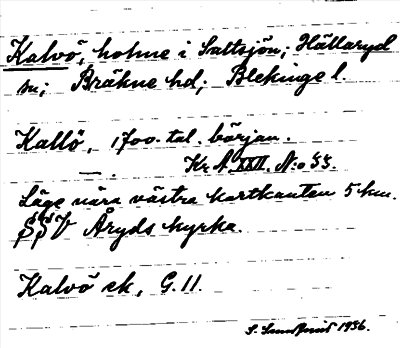 Kalvö, holme i Saltsjön; Hällaryd
sn; Bräkne hd; Blekinge l.
Kallö, 1700-tal. början.
— . Kr. A. XXII. N:o 55.
Läge nära västra kartkanten 5 km.
SSV Åryds kyrka.
Kalvö ek, G. 11.
S. 1936.